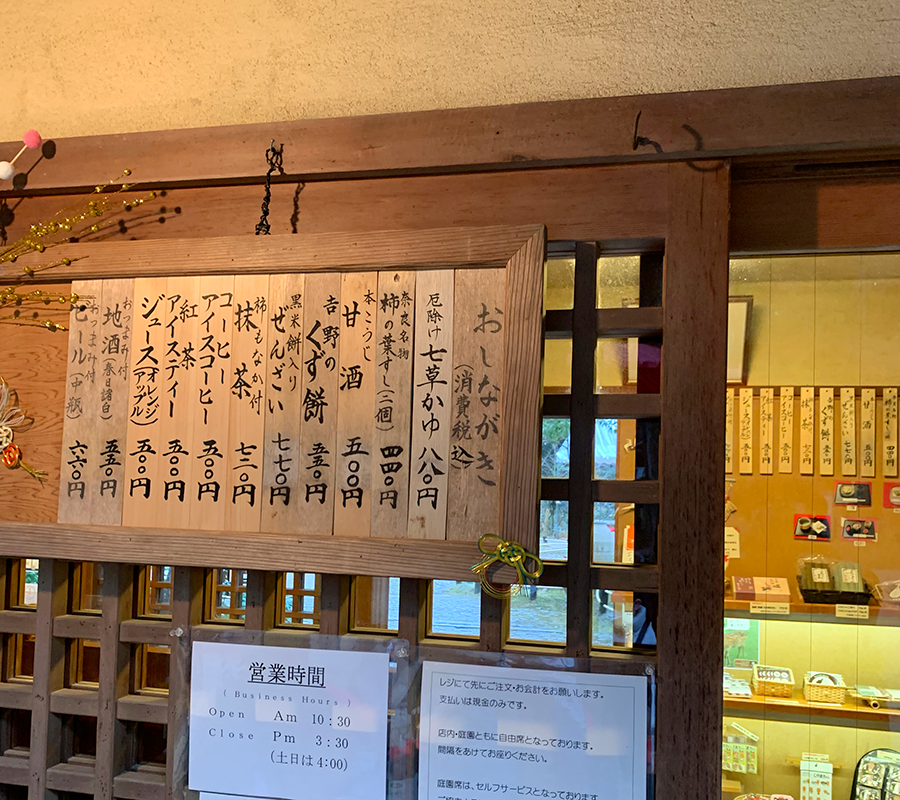 おしながき
(消費税込)
厄除け 七草かゆ 八八〇円
奈良名物
柿の葉すし(二個) 四四〇円
本こうじ
甘酒 五〇〇円
吉野の
くず餅 五五〇円
黒米餅入り
ぜんざい 七七〇円
柿もなか付
抹茶 七二〇円
コーヒー
アイスコーヒー 五〇〇円
紅茶
アイスティー 五〇〇円
ジュース(オレンジ アップル) 五〇〇円
おつまみ付
地酒(春日諸白) 五五〇円
おつまみ付
ビール(中瓶) 六六〇円
営業時間
( Business Hours )
Open Am 10:30
Close Pm 3:30
(土日は4:00)
レジにて先にご注文・お会計をお願いします。
支払いは現金のみです。
店内・庭園ともに自由席となっております。
間隔をあけてお座りください。
庭園席は、セルフサービスとなっております